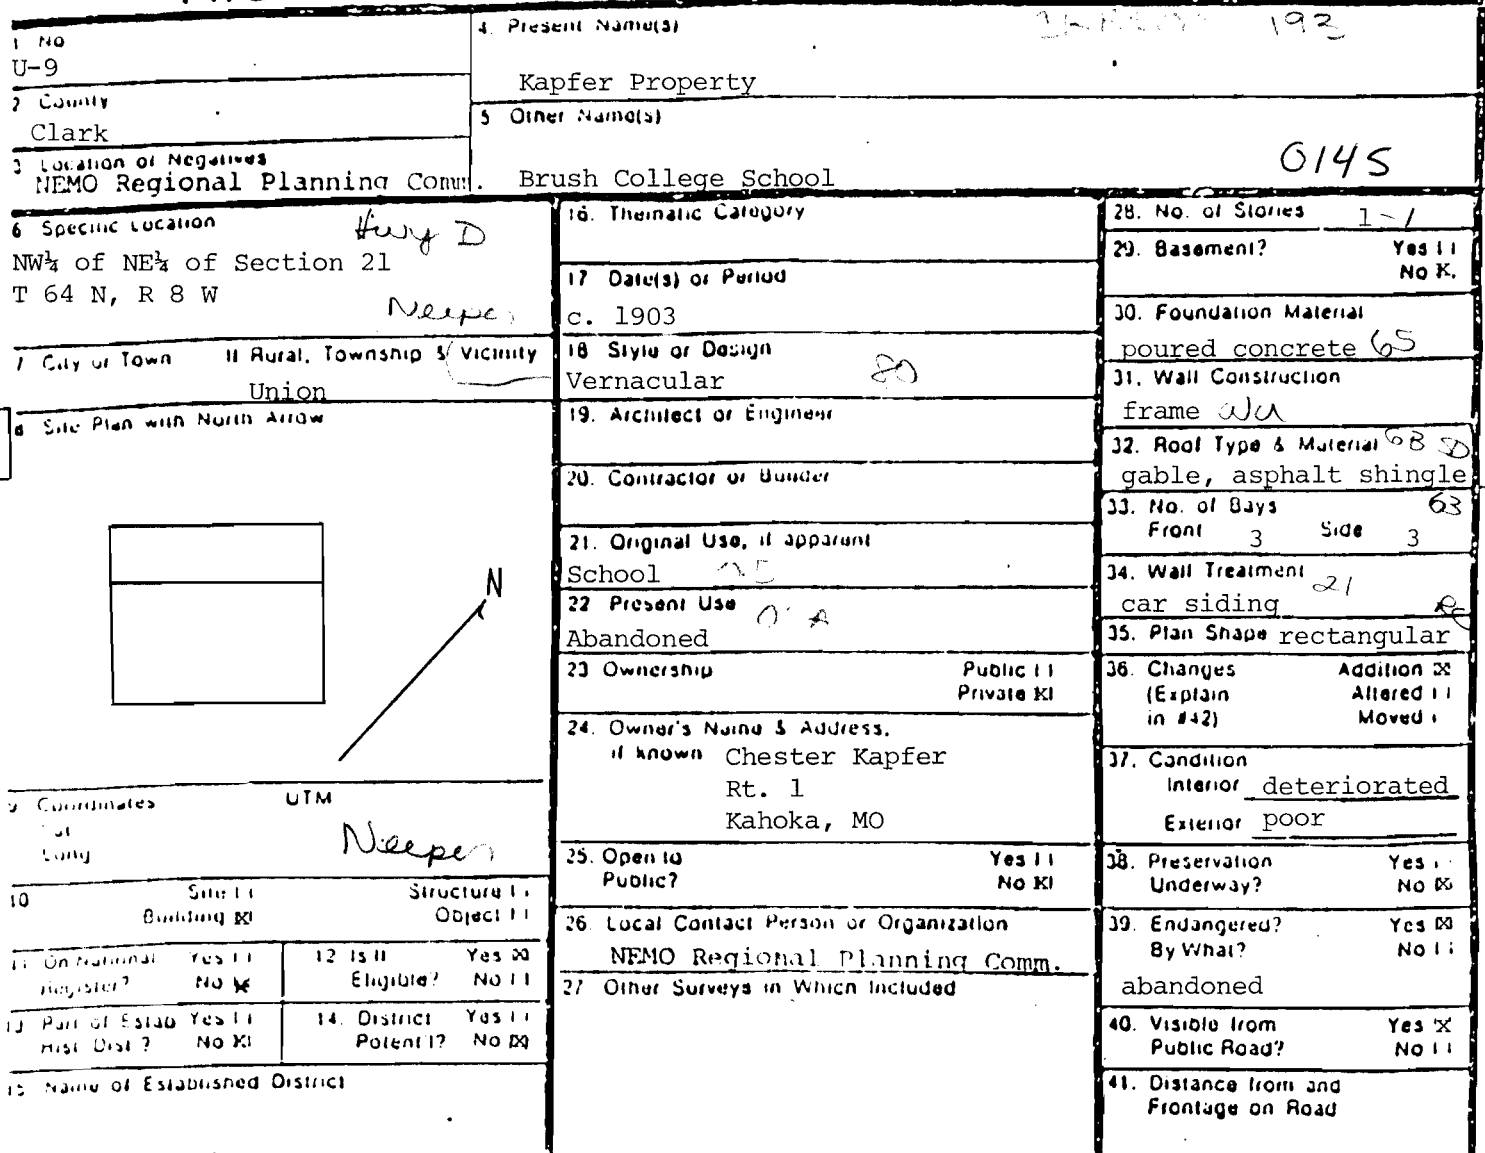 1 No
U-9
2 County
Clark
3 Location of Negatives
NEMO Regional Planning Comm.
4. Present Name(s)
193
Kapfer Property
5 Other Name(s)
0145
Brush College School
6 Specific Location
Hwy D
NW¼ of NE¼ of Section 21
T 64 N, R 8 W
Neeper
7 City or Town If Rural, Township & Vicinity
Union
8 Site Plan with North Arrow
N
9 Coordinates UTM
Lat
Long
Neeper
10 Site Structure
Building Object
11 On National Register? Yes No X
12 Is It Eligible? Yes X No
13 Part of Estab Hist Dist? Yes No X
14. District Potent'l? Yes No X
15 Name of Established District
16. Thematic Category
17 Date(s) or Period
c. 1903
18 Style or Design
80
Vernacular
19. Architect or Engineer
20. Contractor or Builder
21. Original Use, if apparent
School
22 Present Use
Abandoned
23 Ownership Public
Private X
24. Owner's Name & Address,
if known Chester Kapfer
Rt. 1
Kahoka, MO
25. Open to Yes
Public? No X
26. Local Contact Person or Organization
NEMO Regional Planning Comm.
27 Other Surveys in Which Included
28. No. of Stories 1-1
29. Basement? Yes
No X
30. Foundation Material
poured concrete 65
31. Wall Construction
frame
32. Roof Type & Material GB
gable, asphalt shingle
63
33. No. of Bays
Front 3 Side 3
34. Wall Treatment 21
car siding
35. Plan Shape rectangular
36. Changes Addition X
(Explain Altered
in #42) Moved
37. Condition
Interior deteriorated
Exterior poor
38. Preservation Yes
Underway? No X
39. Endangered? Yes X
By What? No
abandoned
40. Visible from Yes X
Public Road? No
41. Distance from and
Frontage on Road